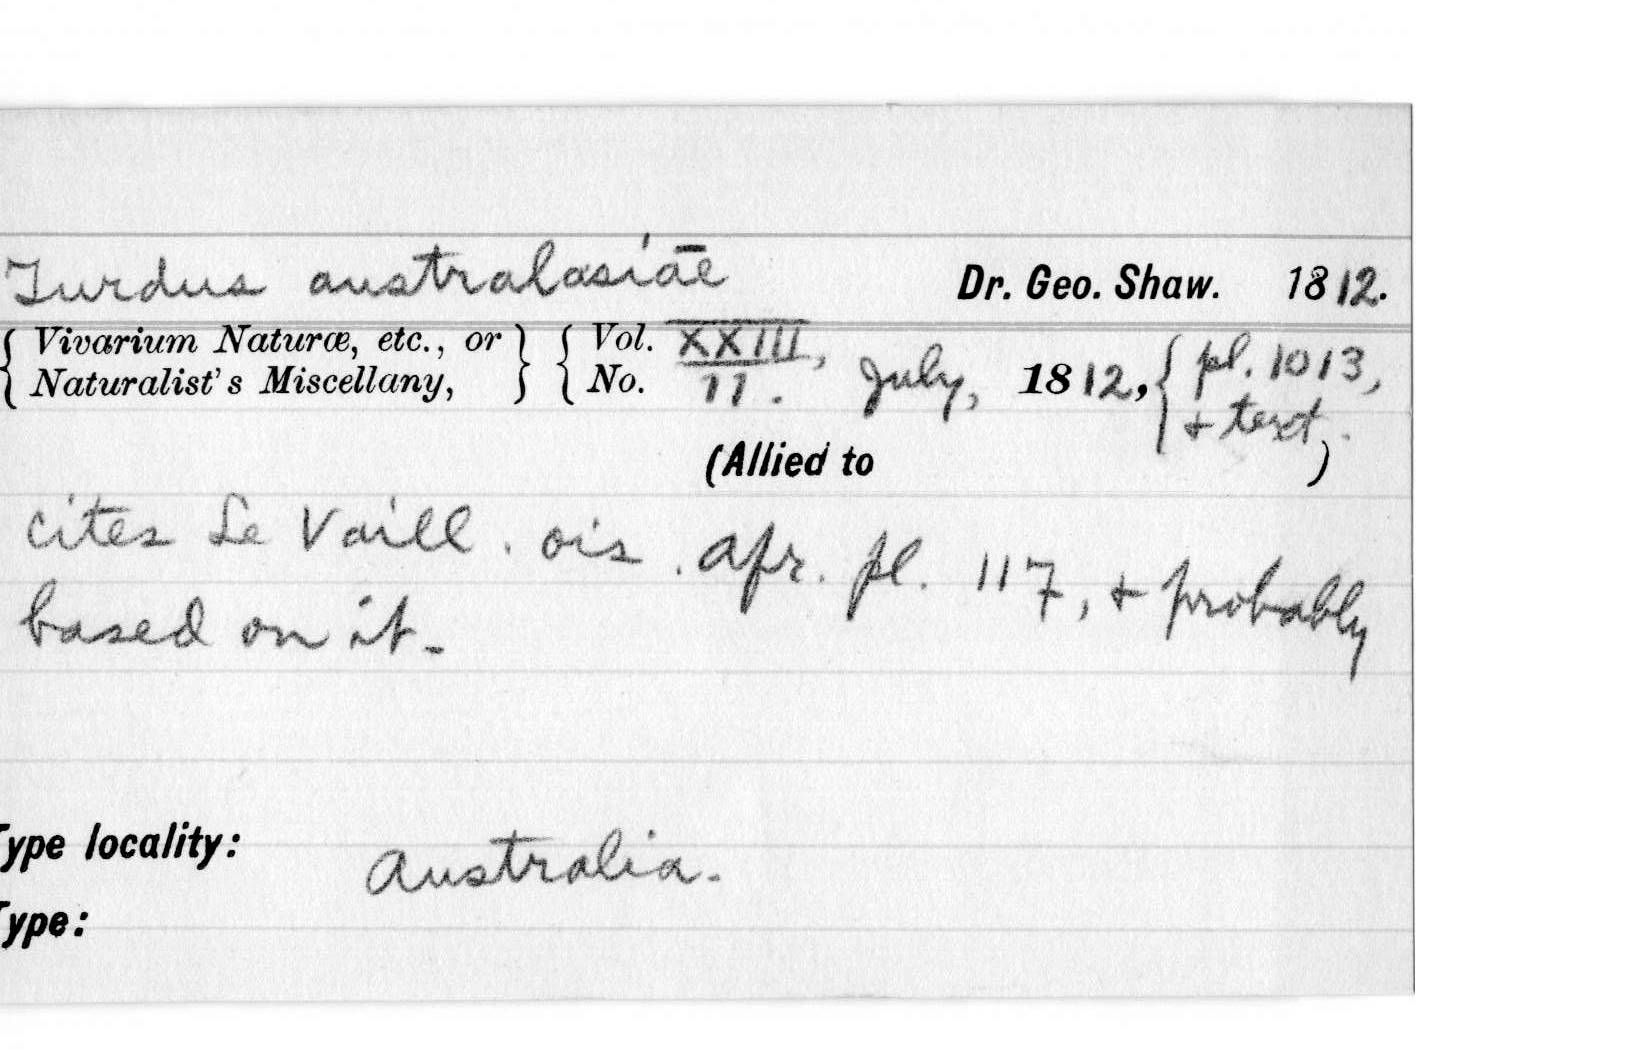 Turdus australasiae Dr. Geo. Shaw. 1812.
{ Vivarium Naturæ, etc., or } { Vol. XXIII,
{ Naturalist's Miscellany, } { No. 11. July, 1812, { pl. 1013,
+ text.
(Allied to )
cites Le Vaill. ois. afr. pl. 117, + probably
based on it.
Type locality: Australia.
Type: